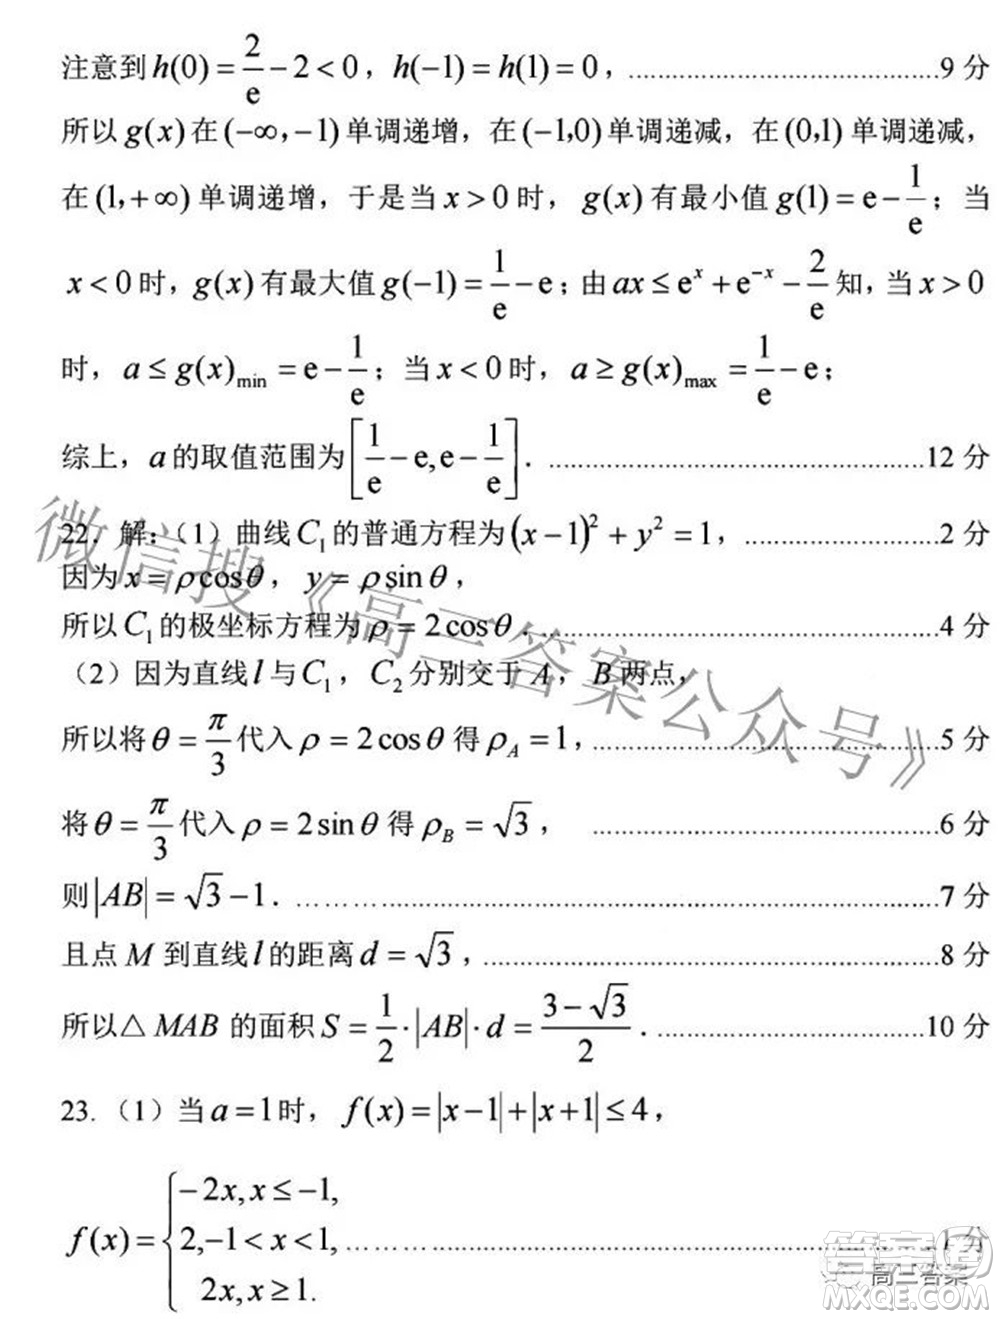 注意到 h(0) = 2/e − 2 < 0，h(−1) = h(1) = 0，……………………9 分
所以 g(x) 在 (−∞, −1) 单调递增，在 (−1,0) 单调递减，在 (0,1) 单调递减，
在 (1, +∞) 单调递增，于是当 x > 0 时，g(x) 有最小值 g(1) = e − 1/e；当
x < 0 时，g(x) 有最大值 g(−1) = 1/e − e；由 ax ≤ eˣ + e⁻ˣ − 2/e 知，当 x > 0
时，a ≤ g(x)min = e − 1/e；当 x < 0 时，a ≥ g(x)max = 1/e − e；
综上，a 的取值范围为 [1/e − e, e − 1/e]．……………………12 分
22．解：（1）曲线 C₁ 的普通方程为 (x − 1)² + y² = 1，……………………2 分
因为 x = ρcosθ，y = ρsinθ，
所以 C₁ 的极坐标方程为 ρ = 2cosθ．……………………4 分
（2）因为直线 l 与 C₁，C₂ 分别交于 A，B 两点，
所以将 θ = π/3 代入 ρ = 2cosθ 得 ρ_A = 1，……………………5 分
将 θ = π/3 代入 ρ = 2sinθ 得 ρ_B = √3，……………………6 分
则 |AB| = √3 − 1．……………………7 分
且点 M 到直线 l 的距离 d = √3，……………………8 分
所以△MAB 的面积 S = 1/2 · |AB| · d = (3 − √3)/2．……………………10 分
23.（1）当 a = 1 时，f(x) = |x − 1| + |x + 1| ≤ 4，
f(x) = { −2x, x ≤ −1,
2, −1 < x < 1, ……………………1 分
2x, x ≥ 1.
微信搜《高三答案公众号》
高三答案
答案圈
MXQE.COM